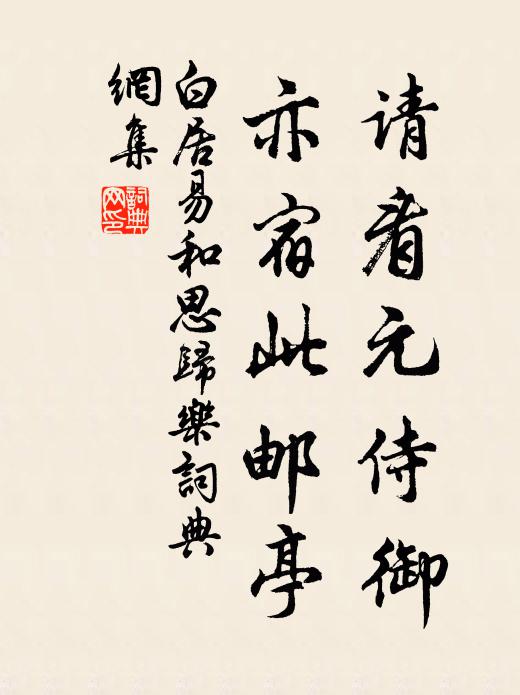 请看元侍御
亦宿此邮亭
白居易和思歸樂詞典
網集
詞典
网印